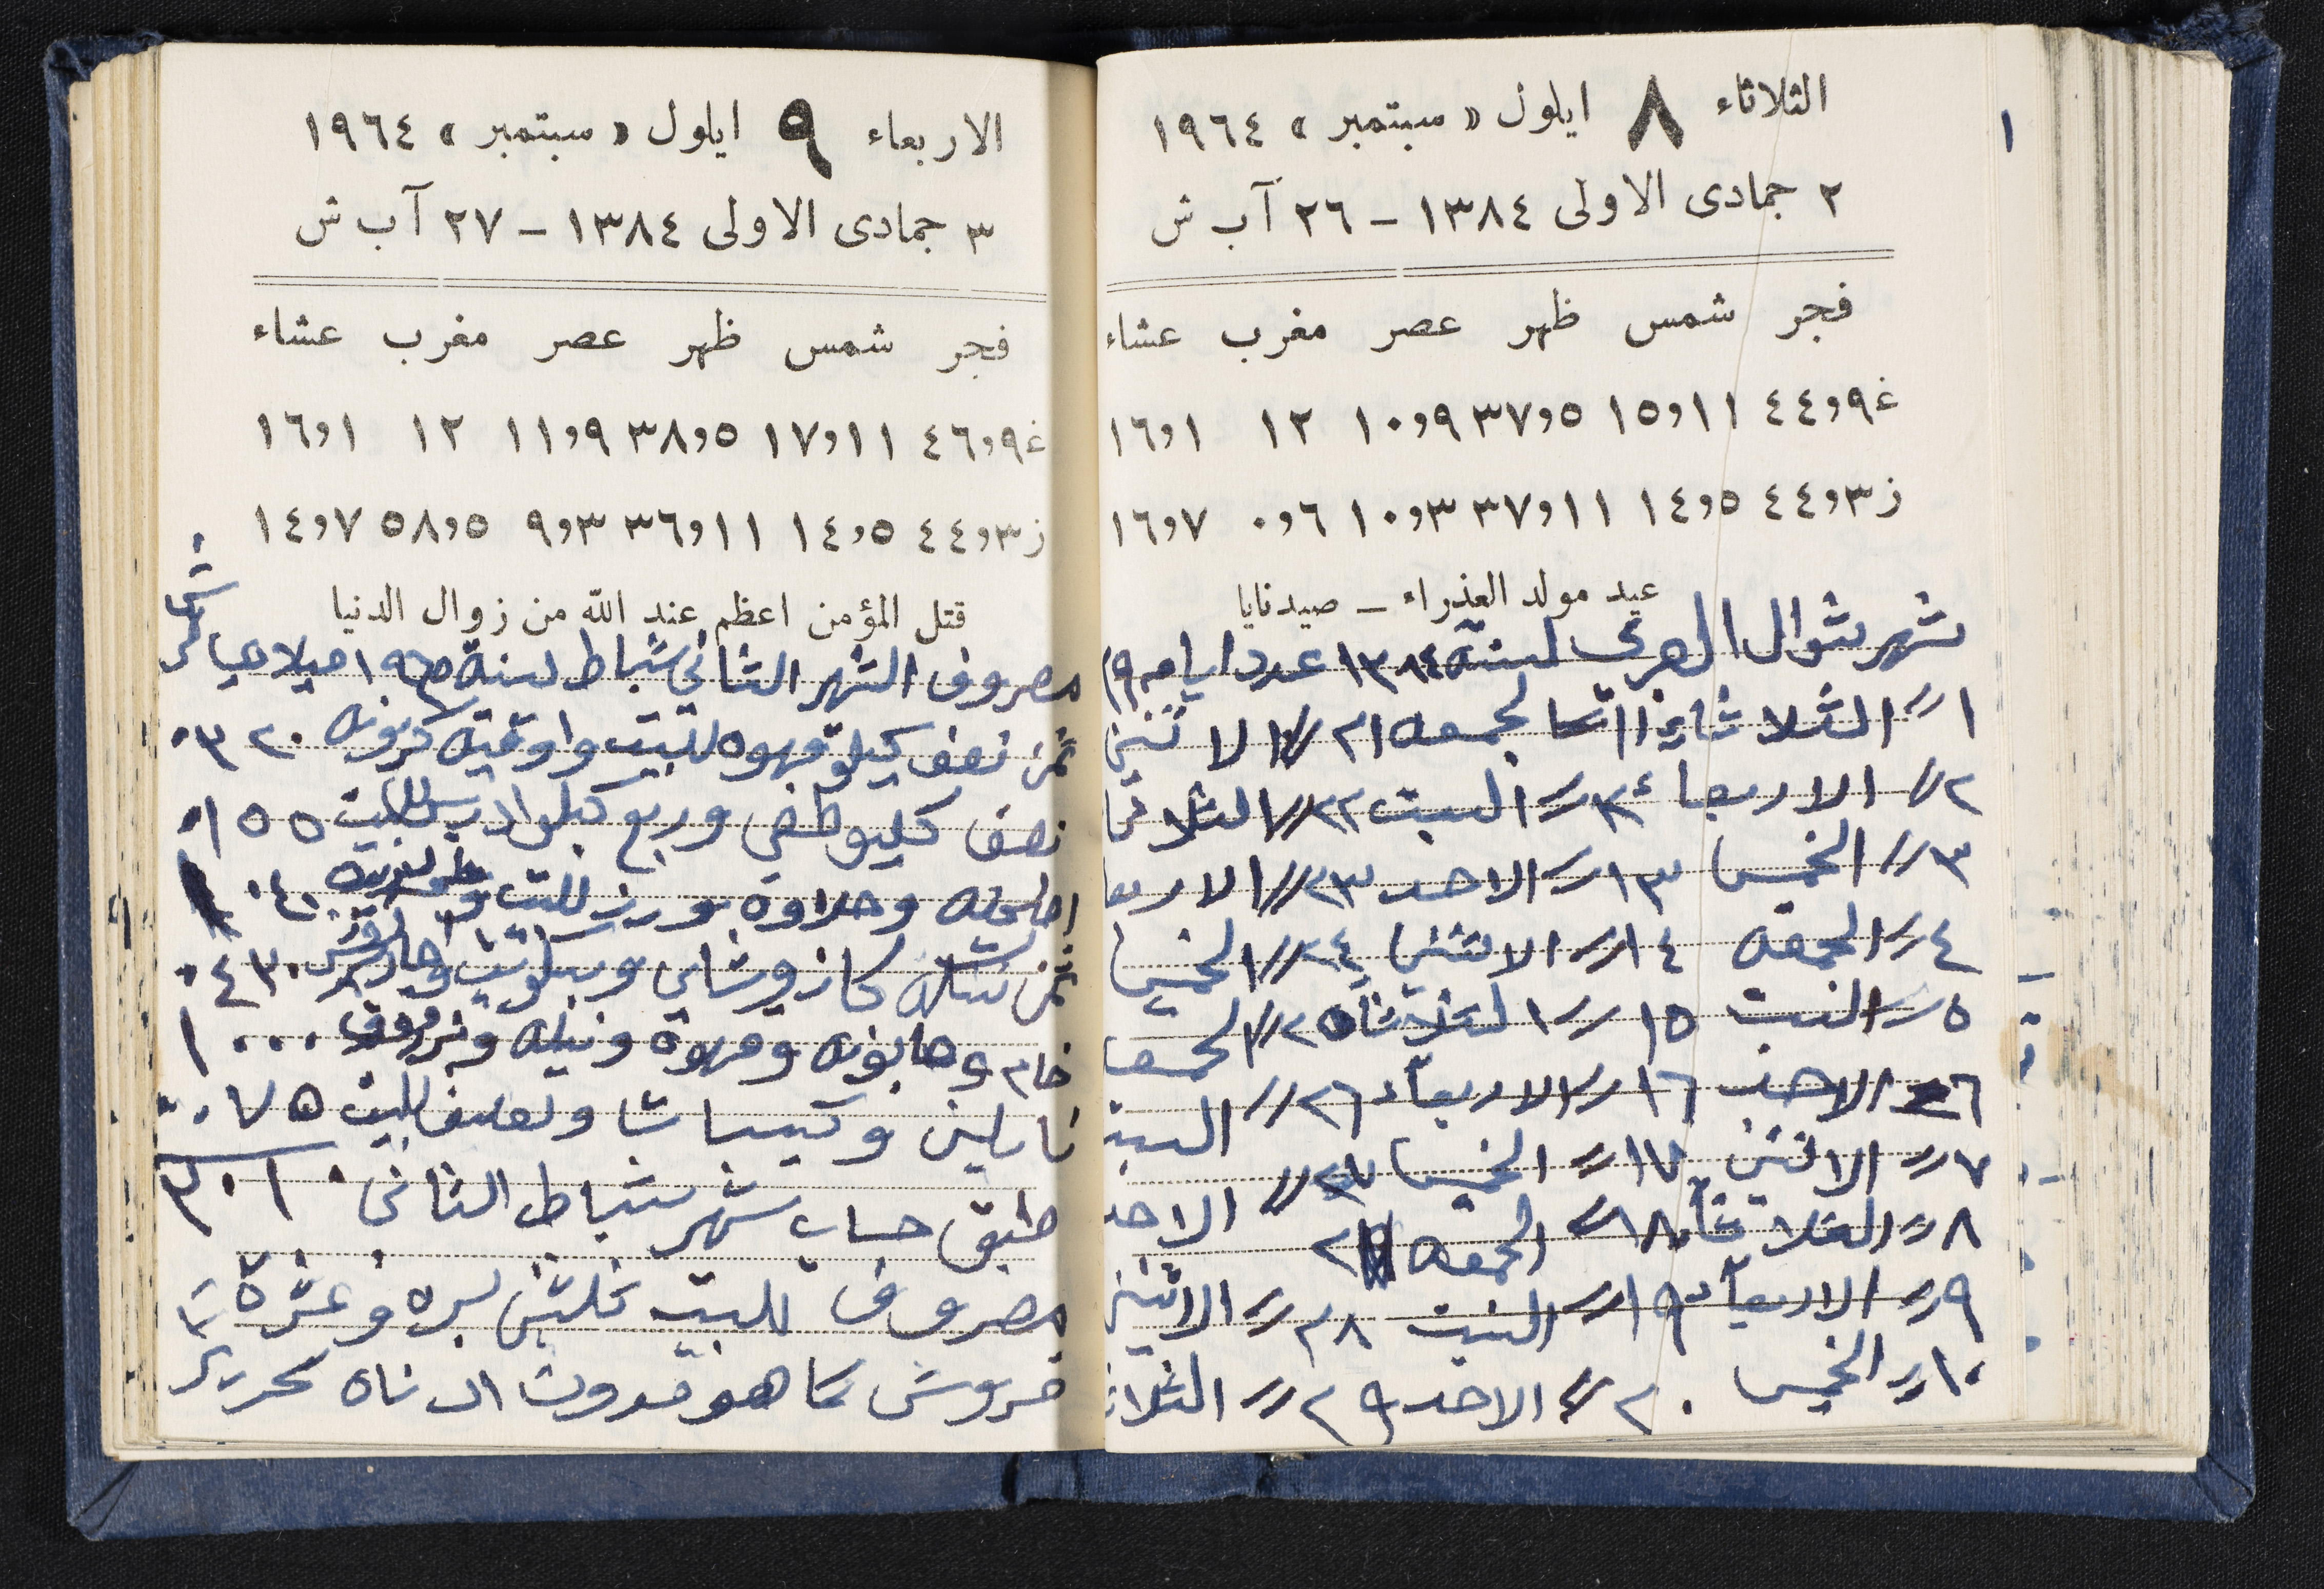 ١
الثلاثاء ٨ ايلول « سبتمبر » ١٩٦٤
٢ جمادى الاولى ١٣٨٤ - ٢٦ آب ش
فجر شمس ظهر عصر مغرب عشاء
غ ٩و٤٤ ١١و١٥ ٥و٣٧ ٩و١٠ ١٢ ١و١٦
ز ٣و٤٤ ٥و١٤ ١١و٣٧ ٣و١٠ ٦و٠ ٧و١٦
عيد مولد العذراء - صيدنايا
شهر شوال العربي لسنة ١٣٨٤ عدد ايامه ٢٩
١ // الثلاثاء ١١ الجمعه ٢١ // الاثنين
٢ // الاربعاء ١٢ // السبت ٢٢ // الثلاثا
٣ // الخميس ١٣ // الاحد ٢٣ // الاربعا
٤ // الجمعه ١٤ // الاثنين ٢٤ // الخميس
٥ // السبت ١٥ // الثلاثاء ٢٥ // الجمعه
٦ الاحد ١٦ // الاربعاء ٢٦ // السبت
٧ // الاثنين ١٧ // الخميس ٢٧ // الاحد
٨ // الثلاثاء ١٨ // الجمعه
٩ // الاربعاء ١٩ // السبت ٢٨ // الاثنين
١٠ // الخميس ٢٠ // الاحد ٢٩ // الثلاثا
الاربعاء ٩ ايلول « سبتمبر » ١٩٦٤
٣ جمادى الاولى ١٣٨٤ - ٢٧ آب ش
فجر شمس ظهر عصر مغرب عشاء
غ ٩و٤٦ ١١و١٧ ٥و٣٨ ٩و١١ ١٢ ١و١٦
ز ٣و٤٤ ٥و١٤ ١١و٣٦ ٣و٩ ٥و٥٨ ٧و١٤
قتل المؤمن اعظم عند الله من زوال الدنيا
مصروف الشهر الثاني شباط لسنة ميلاديا
ثمن نصف كيلو قهوه للبيت واوقيه ٠٣٢٠
نصف كليو وربع كيلو للبيت ٠١٥٥
وحلاوه ورز للبيت ٠٤٠
ثمن تنكة كاز وشاي وبسكويت ٠٤٣٠
خام وصابونه وقهوة ونيله ١٠٠٠
نايلين و للبيت ٠٧٥
طبق حساب شهر شباط الثاني ٣٠١٠
مصروف للبيت ثلثين ليره وعشرة
قروش كما هو مدون ادناه تحرير